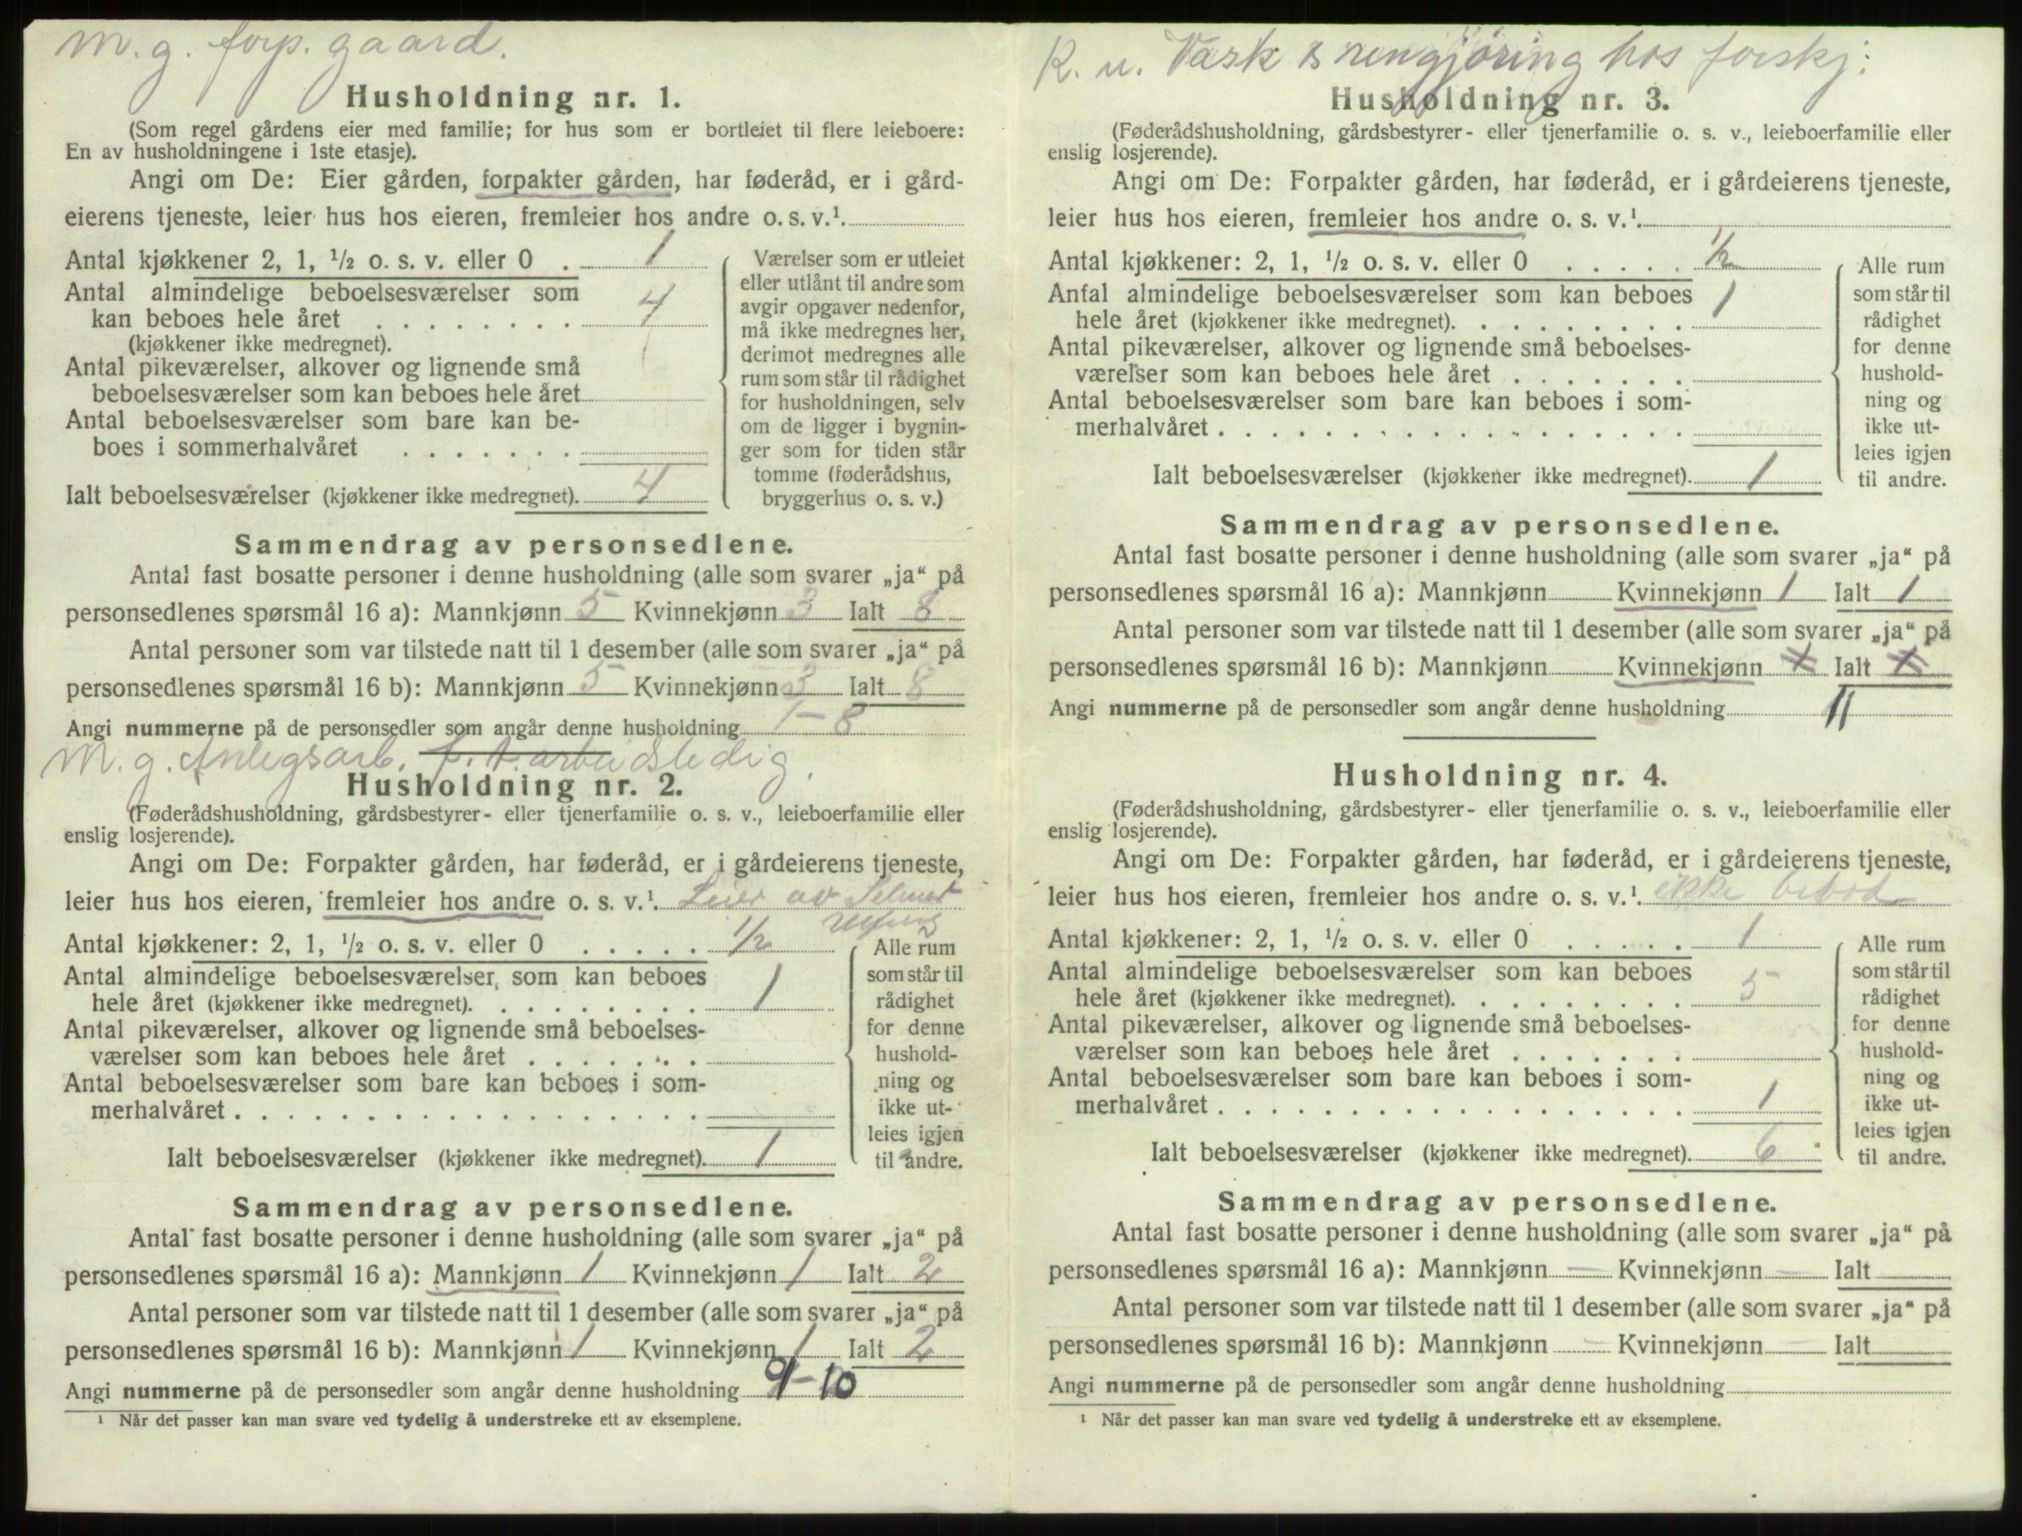 m. g. forp. gaard.
Husholdning nr. 1.
(Som regel gårdens eier med familie; for hus som er bortleiet til flere leieboere:
En av husholdningene i 1ste etasje).
Angi om De: Eier gården, forpakter gården, har føderåd, er i gård-
eierens tjeneste, leier hus hos eieren, fremleier hos andre o. s. v.¹
Antal kjøkkener 2, 1, ½ o. s. v. eller 0 . 1
Antal almindelige beboelsesværelser som
kan beboes hele året . . . . . . . . 4
(kjøkkener ikke medregnet).
Antal pikeværelser, alkover og lignende små
beboelsesværelser som kan beboes hele året
Antal beboelsesværelser som bare kan be-
boes i sommerhalvåret . . . . . . .
Ialt beboelsesværelser (kjøkkener ikke medregnet). 4
Værelser som er utleiet
eller utlånt til andre som
avgir opgaver nedenfor,
må ikke medregnes her,
derimot medregnes alle
rum som står til rådighet
for husholdningen, selv
om de ligger i bygnin-
ger som for tiden står
tomme (føderådshus,
bryggerhus o. s. v.)
Sammendrag av personsedlene.
Antal fast bosatte personer i denne husholdning (alle som svarer „ja“ på
personsedlenes spørsmål 16 a): Mannkjønn 5 Kvinnekjønn 3 Ialt 8
Antal personer som var tilstede natt til 1 desember (alle som svarer „ja“ på
personsedlenes spørsmål 16 b): Mannkjønn 5 Kvinnekjønn 3 Ialt 8
Angi nummerne på de personsedler som angår denne husholdning 1-8
m. g. Anlegsarb. f. t. arbeidsledig.
Husholdning nr. 2.
(Føderådshusholdning, gårdsbestyrer- eller tjenerfamilie o. s. v., leieboerfamilie eller
enslig losjerende).
Angi om De: Forpakter gården, har føderåd, er i gårdeierens tjeneste,
leier hus hos eieren, fremleier hos andre o. s. v.¹ Leier av
Antal kjøkkener: 2, 1, ½ o. s. v. eller 0 . . . . . ½
Antal almindelige beboelsesværelser som kan beboes
hele året (kjøkkener ikke medregnet). . . . . . . . . 1
Antal pikeværelser, alkover og lignende små beboelses-
værelser som kan beboes hele året . . . . . . .
Antal beboelsesværelser som bare kan beboes i som-
merhalvåret . . . . . . . . . . . . . . . . . .
Ialt beboelsesværelser (kjøkkener ikke medregnet). 1
Alle rum
som står til
rådighet
for denne
hushold-
ning og
ikke ut-
leies igjen
til andre.
Sammendrag av personsedlene.
Antal fast bosatte personer i denne husholdning (alle som svarer „ja“ på
personsedlenes spørsmål 16 a): Mannkjønn 1 Kvinnekjønn 1 Ialt 2
Antal personer som var tilstede natt til 1 desember (alle som svarer „ja“ på
personsedlenes spørsmål 16 b): Mannkjønn 1 Kvinnekjønn 1 Ialt 2
Angi nummerne på de personsedler som angår denne husholdning 9-10
¹ Når det passer kan man svare ved tydelig å understreke ett av eksemplene.
K. u. Vask & rengjøring hos forskj:
Husholdning nr. 3.
(Føderådshusholdning, gårdsbestyrer- eller tjenerfamilie o. s. v., leieboerfamilie eller
enslig losjerende).
Angi om De: Forpakter gården, har føderåd, er i gårdeierens tjeneste,
leier hus hos eieren, fremleier hos andre o. s. v.¹
Antal kjøkkener: 2, 1, ½ o. s. v. eller 0 . . . . . ½
Antal almindelige beboelsesværelser som kan beboes 1
hele året (kjøkkener ikke medregnet). . . . . . . . .
Antal pikeværelser, alkover og lignende små beboelses-
værelser som kan beboes hele året . . . . . . .
Antal beboelsesværelser som bare kan beboes i som-
merhalvåret . . . . . . . . . . . . . . . . . .
Ialt beboelsesværelser (kjøkkener ikke medregnet). 1
Alle rum
som står til
rådighet
for denne
hushold-
ning og
ikke ut-
leies igjen
til andre.
Sammendrag av personsedlene.
Antal fast bosatte personer i denne husholdning (alle som svarer „ja“ på
personsedlenes spørsmål 16 a): Mannkjønn Kvinnekjønn 1 Ialt 1
Antal personer som var tilstede natt til 1 desember (alle som svarer „ja“ på
personsedlenes spørsmål 16 b): Mannkjønn Kvinnekjønn Ialt
Angi nummerne på de personsedler som angår denne husholdning 11
Husholdning nr. 4.
(Føderådshusholdning, gårdsbestyrer- eller tjenerfamilie o. s. v., leieboerfamilie eller
enslig losjerende).
Angi om De: Forpakter gården, har føderåd, er i gårdeierens tjeneste,
leier hus hos eieren, fremleier hos andre o. s. v.¹ ikke bebod
Antal kjøkkener: 2, 1, ½ o. s. v. eller 0 . . . . . 1
Antal almindelige beboelsesværelser som kan beboes
hele året (kjøkkener ikke medregnet). . . . . . . . . 5
Antal pikeværelser, alkover og lignende små beboelses-
værelser som kan beboes hele året . . . . . . .
Antal beboelsesværelser som bare kan beboes i som-
merhalvåret . . . . . . . . . . . . . . . . . . 1
Ialt beboelsesværelser (kjøkkener ikke medregnet). 6
Alle rum
som står til
rådighet
for denne
hushold-
ning og
ikke ut-
leies igjen
til andre.
Sammendrag av personsedlene.
Antal fast bosatte personer i denne husholdning (alle som svarer „ja“ på
personsedlenes spørsmål 16 a): Mannkjønn — Kvinnekjønn — Ialt
Antal personer som var tilstede natt til 1 desember (alle som svarer „ja“ på
personsedlenes spørsmål 16 b): Mannkjønn — Kvinnekjønn — Ialt
Angi nummerne på de personsedler som angår denne husholdning
¹ Når det passer kan man svare ved tydelig å understreke ett av eksemplene.